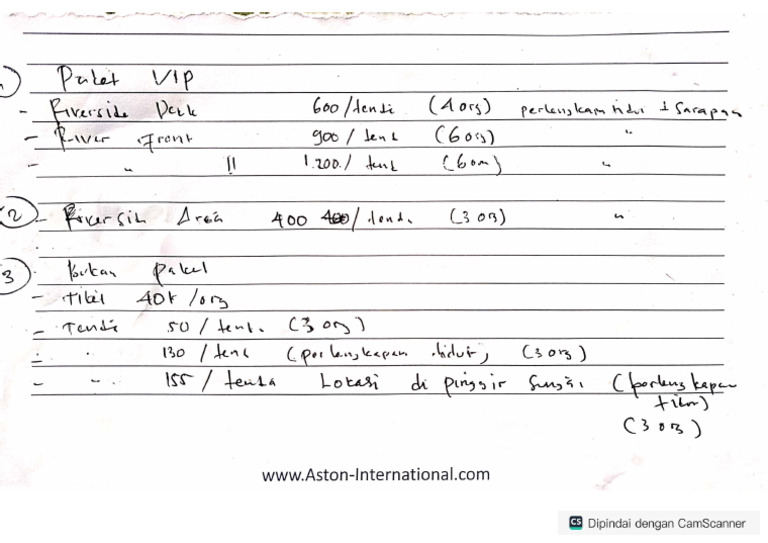 1 Paket VIP
- Riverside Deck 600/tenda (4 org) perlengkapan tidur + Sarapan
- River Front 900/tent (6 org) "
- " II 1.200./tent (6 org) "
2 - Riversih Area 400 400/tenda (3 org) "
3 bukan paket
- Tiket 40k/org
- Tenda 50/tent. (3 org)
- " 130/tent (perlengkapan tidur, (3 org)
- " 155/tenda Lokasi di pinggir sungai (perlengkapan
tidur)
(3 org)
www.Aston-International.com
CS Dipindai dengan CamScanner